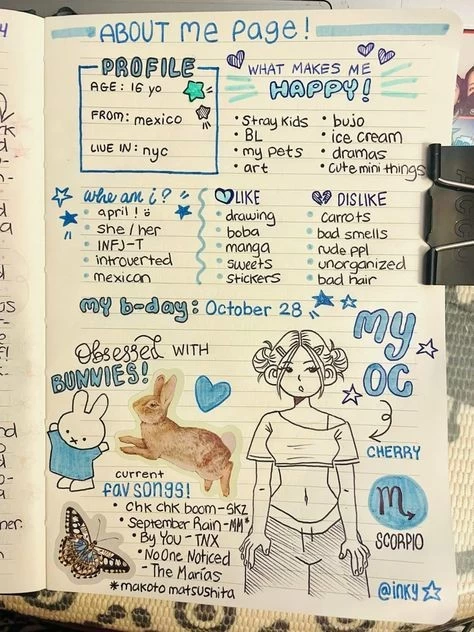 ABOUT Me PAGe!
PROFILE
AGE: 16 yo
FROM: mexico
LIVE IN: nyc
WHAT MAKES ME
HAPPY!
• Stray Kids
• BL
• my pets
• art
• bujo
• ice cream
• dramas
• cute mini things
who am i?
• april! ü
• she/her
• INFJ-T
• introverted
• mexican
LIKE
• drawing
• boba
• manga
• sweets
• stickers
DISLIKE
• carrots
• bad smells
• rude ppl
• unorganized
• bad hair
my b-day: October 28
Obsessed WITH
BUNNIES!
MY
OC
CHERRY
SCORPIO
current
fav songs!
• chk chk boom - SKZ
• September Rain - MM*
• By You - TNX
• No One Noticed
- The Marías
* makoto matsushita
@inky